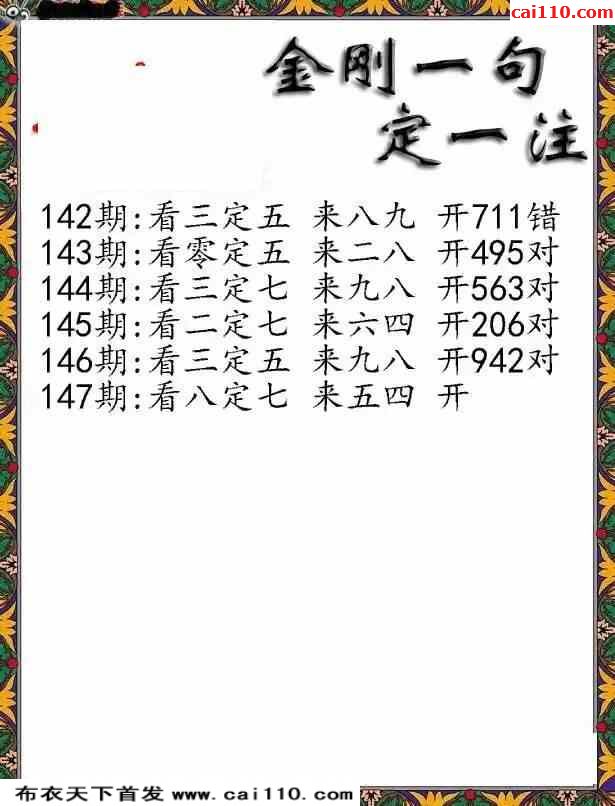 cai110.com
金刚一句
定一注
142期:看三定五 来八九 开711错
143期:看零定五 来二八 开495对
144期:看三定七 来九八 开563对
145期:看二定七 来六四 开206对
146期:看三定五 来九八 开942对
147期:看八定七 来五四 开
布衣天下首发 www.cai110.com